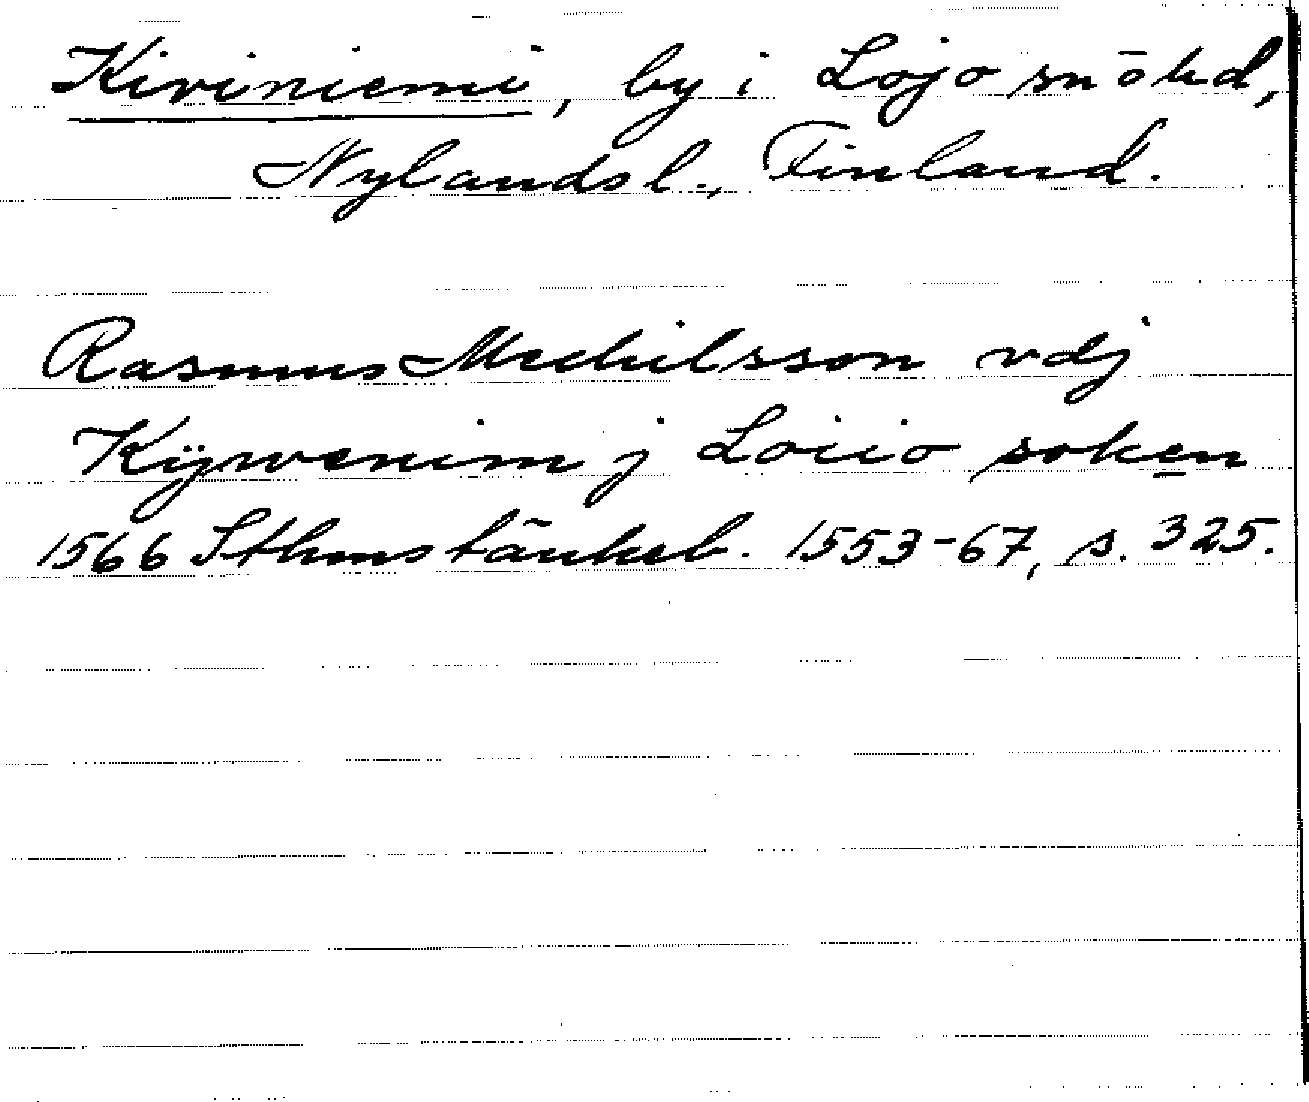 Kiviniemi, by i Lojo sn o hd,
Nylands l., Finland.
Rasmus Mechilsson vdj
Kÿrwenim j Loiio soken
1566 Sthms tänkeb. 1553-67, s. 325.